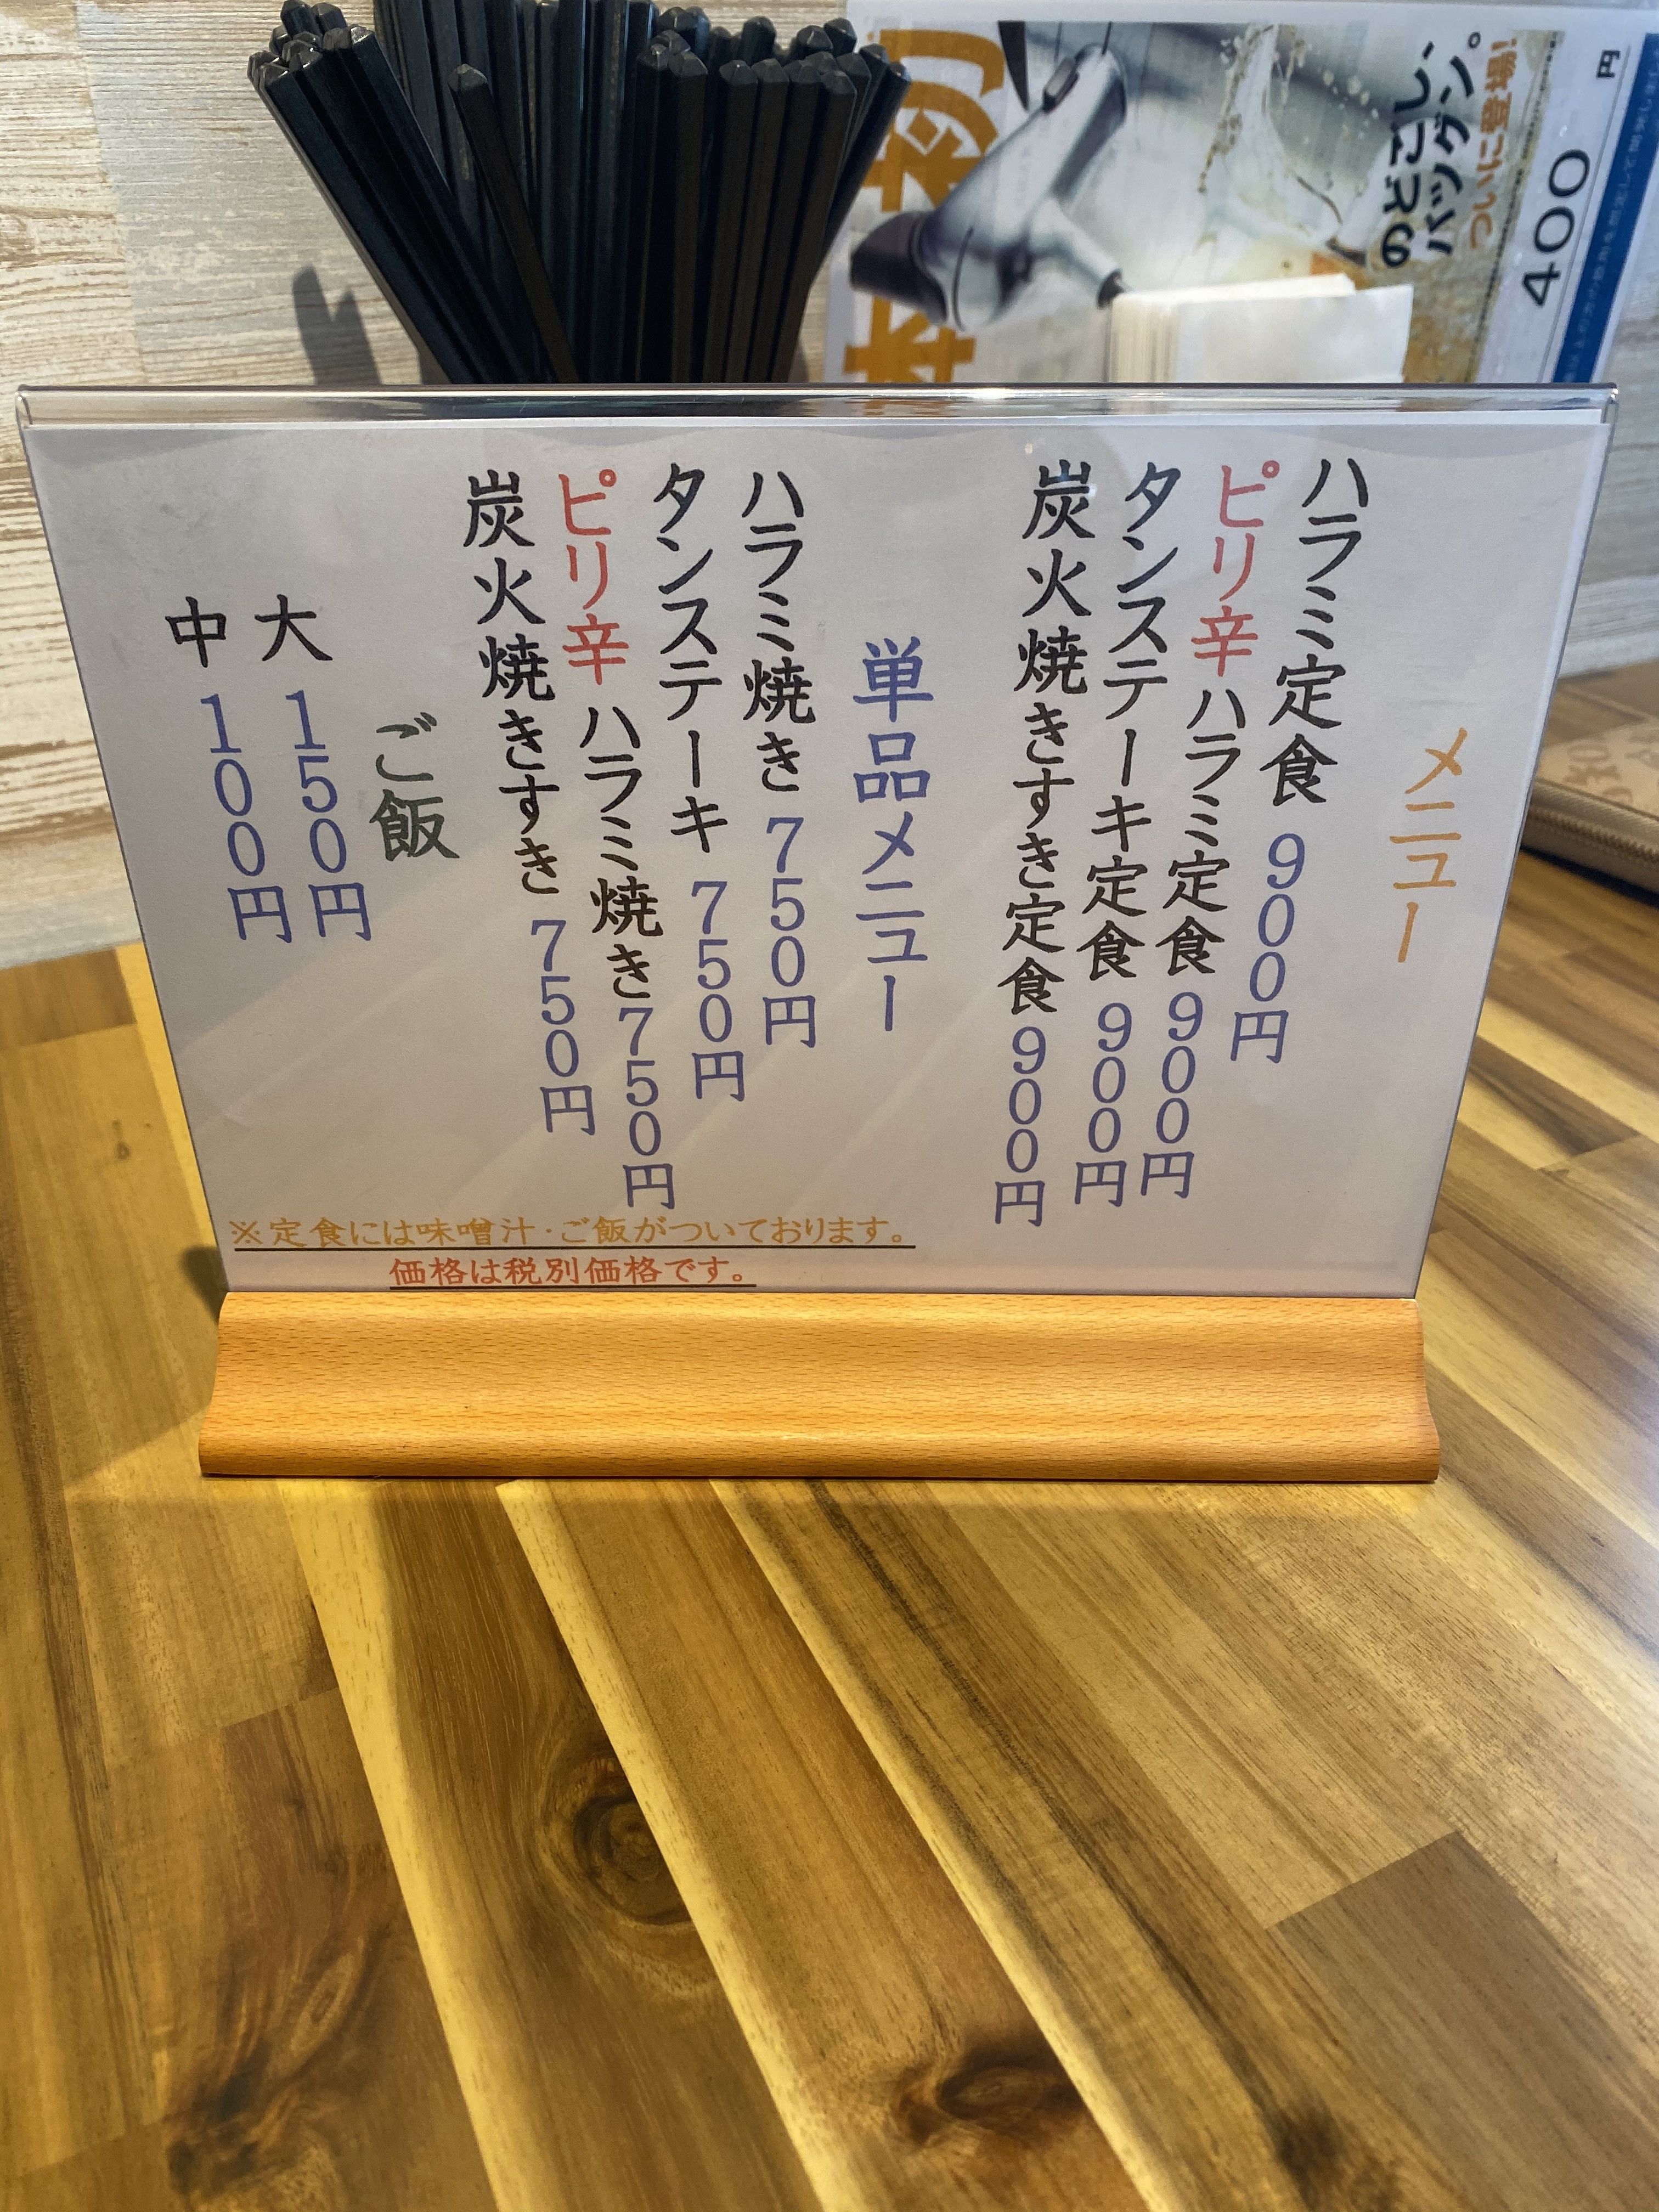 メニュー
ハラミ定食 900円
ピリ辛 ハラミ定食 900円
タンステーキ定食 900円
炭火焼きすき定食 900円
単品メニュー
ハラミ焼き 750円
タンステーキ 750円
ピリ辛 ハラミ焼き 750円
炭火焼きすき 750円
ご飯
大 150円
中 100円
※定食には味噌汁・ご飯がついております。
価格は税別価格です。
のどごし、
バツグン。
ついに登場!
400円